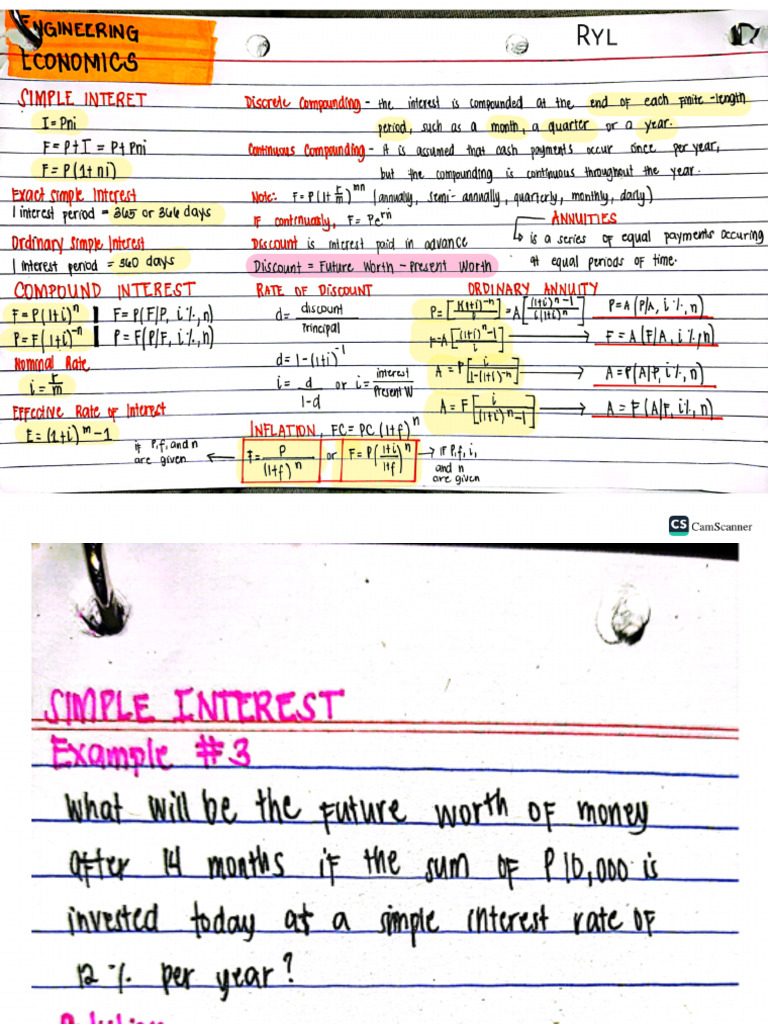 ENGINEERING
ECONOMICS
RYL
SIMPLE INTERET
I = Pni
F = P+I = P+Pni
F = P(1+ni)
Exact simple Interest
1 interest period = 365 or 366 days
Ordinary Simple Interest
1 interest period = 360 days
COMPOUND INTEREST
F = P(1+i)^n | F = P(F/P, i%, n)
P = F(1+i)^-n | P = F(P/F, i%, n)
Nominal Rate
i = r/m
Effective Rate of Interest
E = (1+i)^m - 1
Discrete Compounding - the interest is compounded at the end of each finite-length
period, such as a month, a quarter or a year.
Continuous Compounding - it is assumed that cash payments occur once per year,
but the compounding is continuous throughout the year.
Note: F = P(1+r/m)^mn (annually, semi-annually, quarterly, monthly, daily)
If continuously, F = Pe^rn
Discount is interest paid in advance
Discount = Future Worth - Present Worth
ANNUITIES
↳ is a series of equal payments occuring
at equal periods of time.
RATE OF DISCOUNT
d = discount/Principal
d = 1-(1+i)^-1
i = d/1-d or i = interest/Present W
INFLATION, FC = PC(1+f)^n
if P, f, and n
are given
←
F = P/(1+f)^n or F = P(1+i/1+f)^n
→ if P, f, i,
and n
are given
ORDINARY ANNUITY
= A[(1+i)^n-1/i(1+i)^n] P = A(P/A, i%, n)
F = A[(1+i)^n-1/i] → F = A(F/A, i%, n)
A = P[i/1-(1+i)^-n] → A = P(A/P, i%, n)
A = F[i/(1+i)^n-1] → A = F(A/F, i%, n)
CS CamScanner
SIMPLE INTEREST
Example #3
What will be the future worth of money
after 14 months if the sum of P10,000 is
invested today at a simple interest rate of
12% per year?